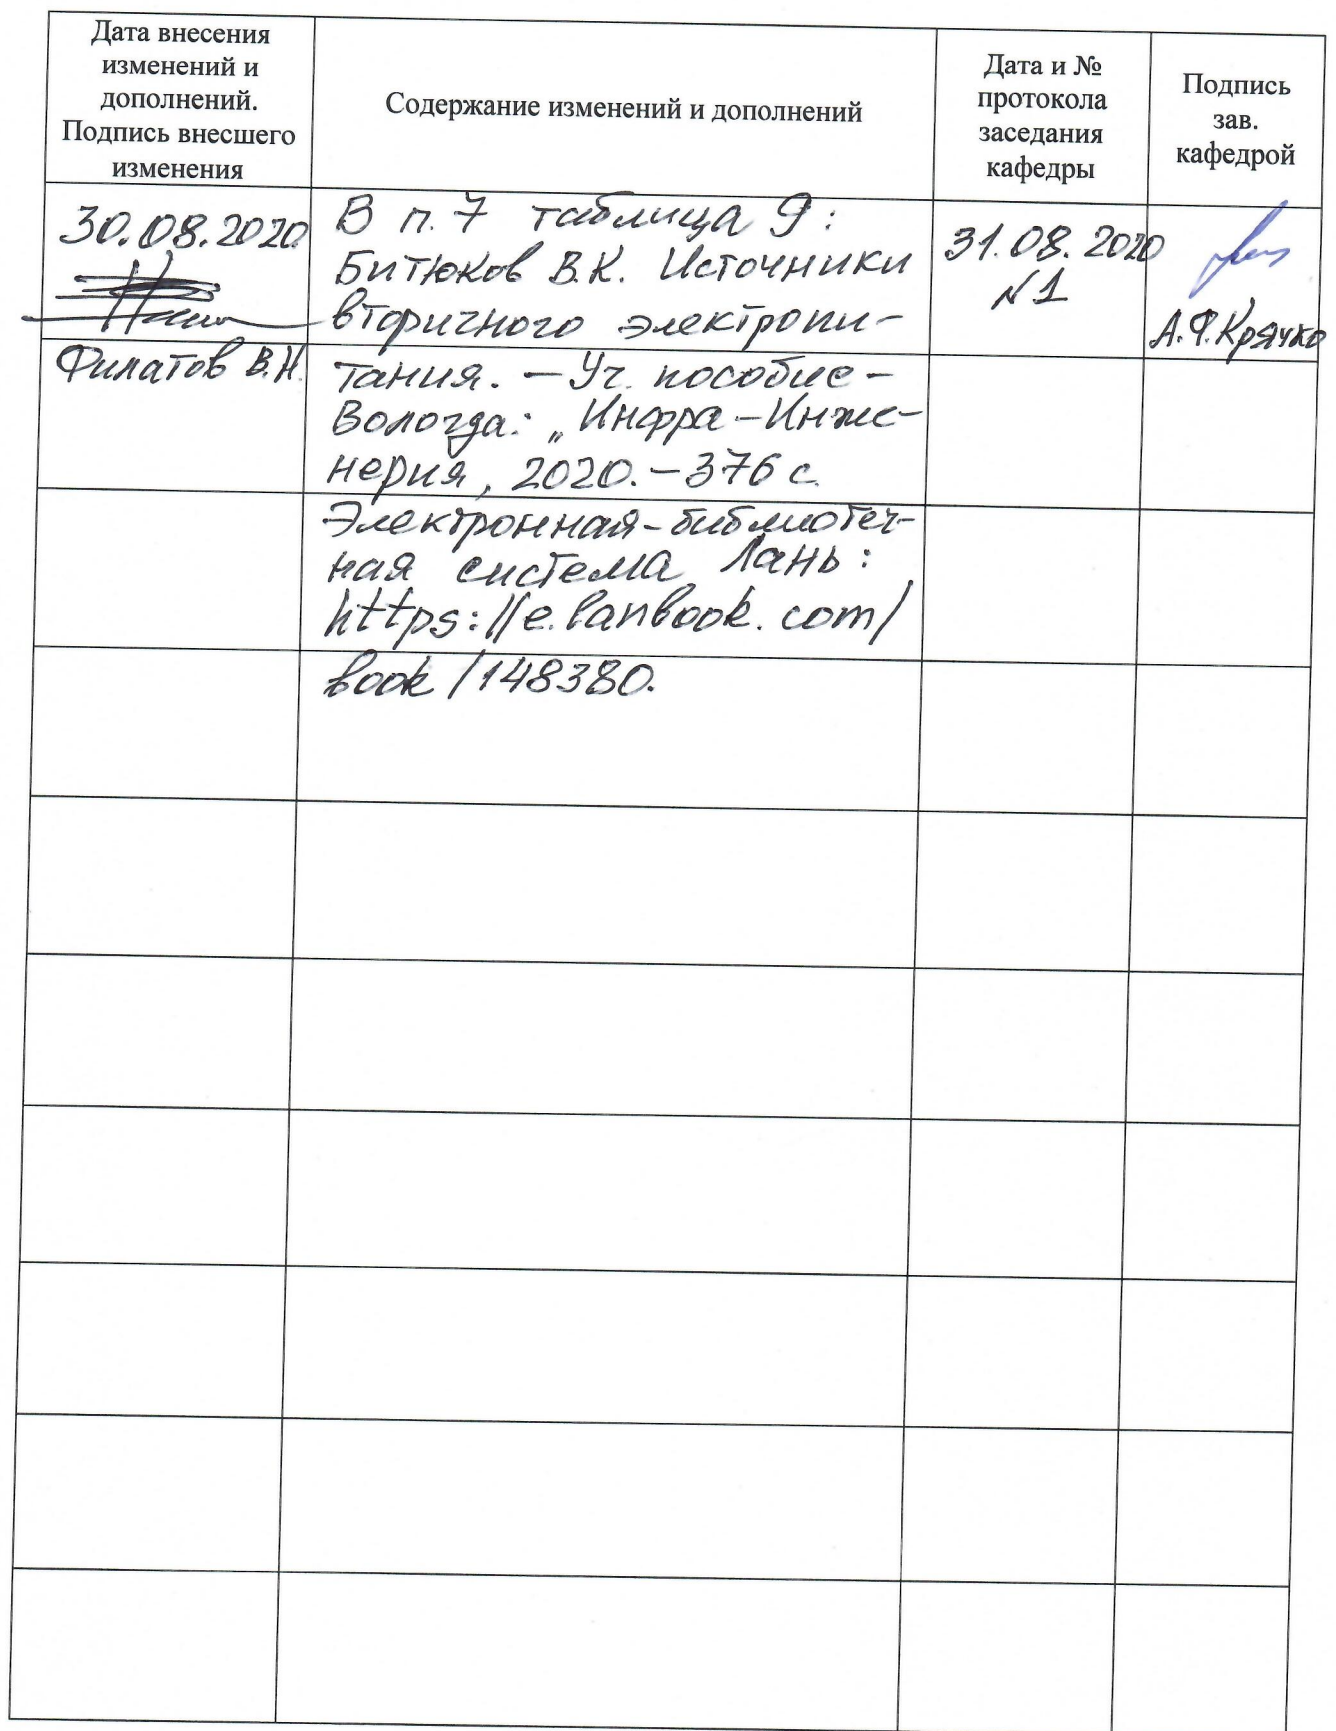 Дата внесения
изменений и
дополнений.
Подпись внесшего
изменения
Содержание изменений и дополнений
Дата и №
протокола
заседания
кафедры
Подпись
зав.
кафедрой
30.08.2020
Филатов В.Н.
В п. 7 таблица 9:
Битюков В.К. Источники
вторичного электропи-
тания. – Уч. пособие –
Вологда: „Инфра-Инже-
нерия, 2020. – 376 с.
Электронная-библиотеч-
ная система Лань:
https://e.lanbook.com/
book/148380.
31.08.2020
№1
А.Ф.Крячко